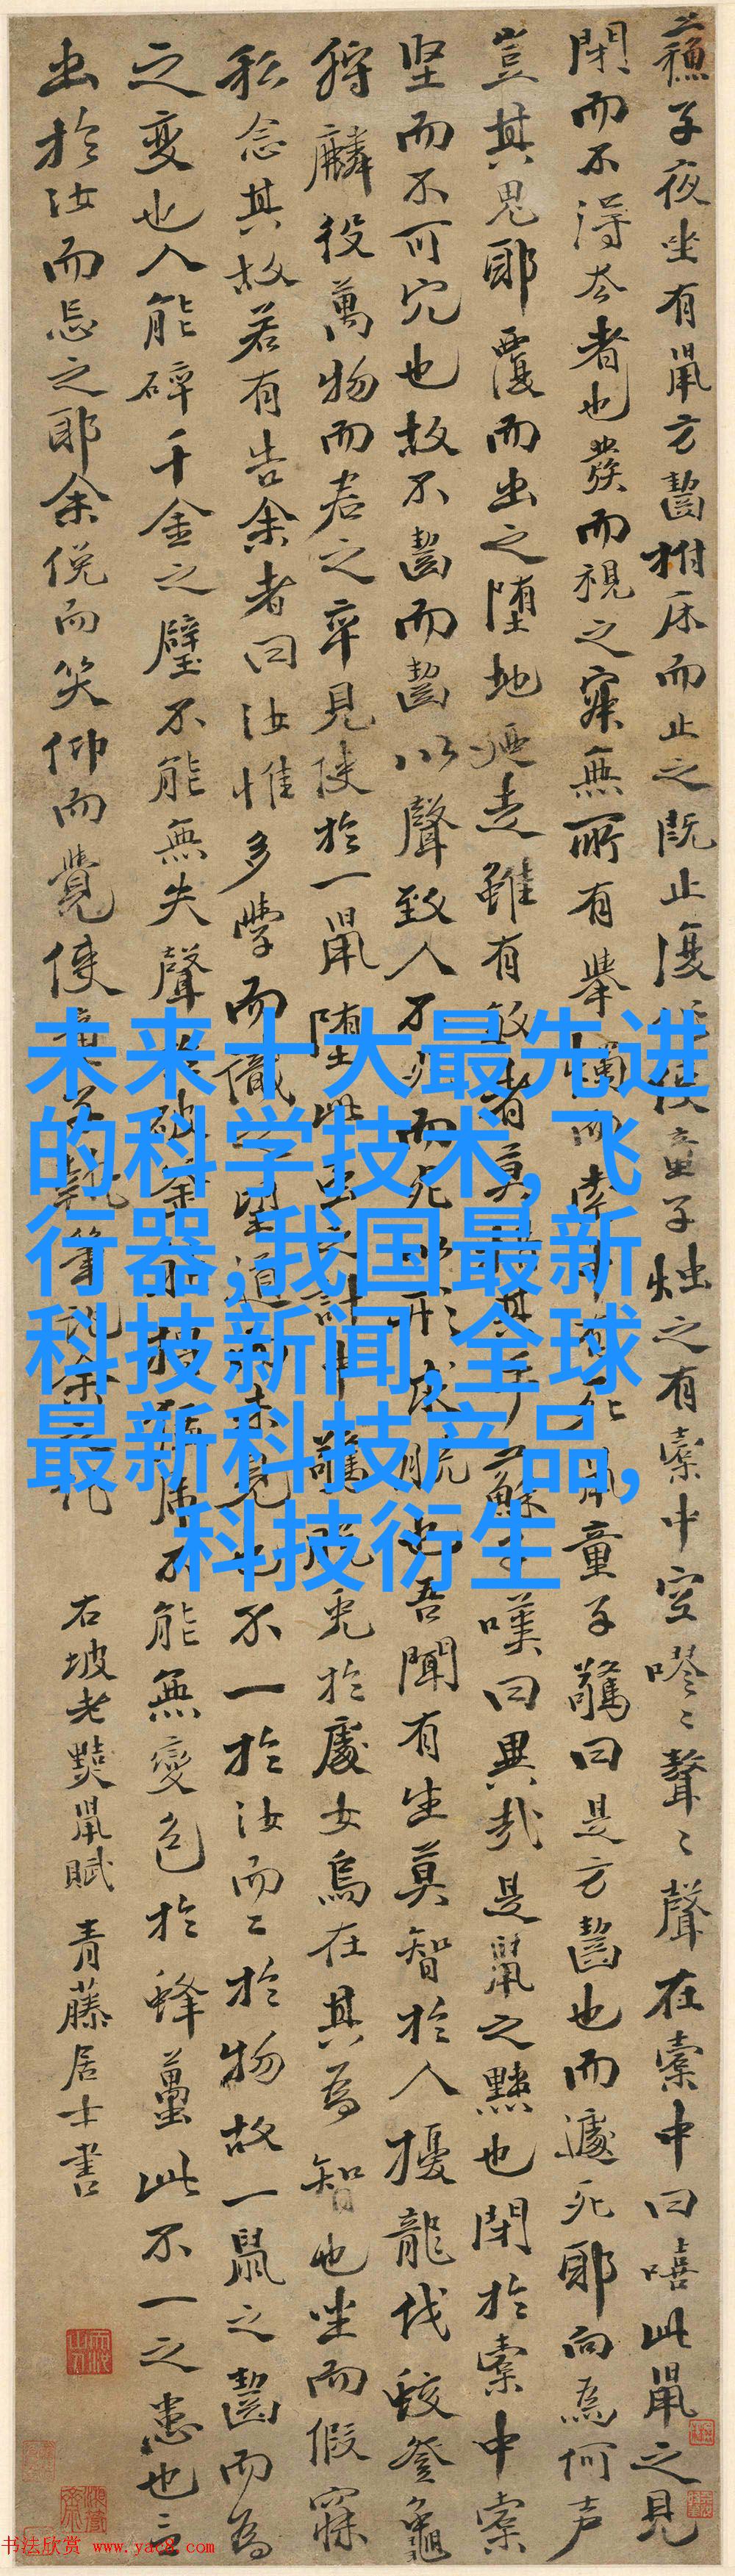 蘇子夜坐有鼠方齧拊床而止之既止復作使童子燭之有橐中空嘐〻聱〻聲在橐中曰嘻此鼠之見
閉而不得去者也發而視之寂無所有舉燭而索中有死鼠童子驚曰是方齧也而遽死耶向為何声
豈其鬼耶覆而出之墮地廼走雖有敏者莫措其手蘇子嘆曰異哉是鼠之黠也閉於橐中橐
堅而不可穴也故不齧而齧以聲致人不死而死以形求脱也吾聞有生莫智於人擾龍伐蛟登龜
狩麟役萬物而君之卒見使於一鼠墮此蟲之計中驚脱兎於處女烏在其為智也坐而假寐
私念其故若有告余者曰汝惟多學而識之望道而未見也不一於汝而二於物故一鼠之齧而為
之變也人能碎千金之璧不能無失聲於破釜能搏猛虎不能無變色於蜂蠆此不一之患也言
出於汝而忘之耶余俛而笑仰而覺使童子執筆記余之
右坡老黠鼠賦 青藤居士書
未来十大最先进
的科学技术,飞
行器,我国最新
科技新闻,全球
最新科技产品,
科技衍生
书法欣赏 www.yac8.com